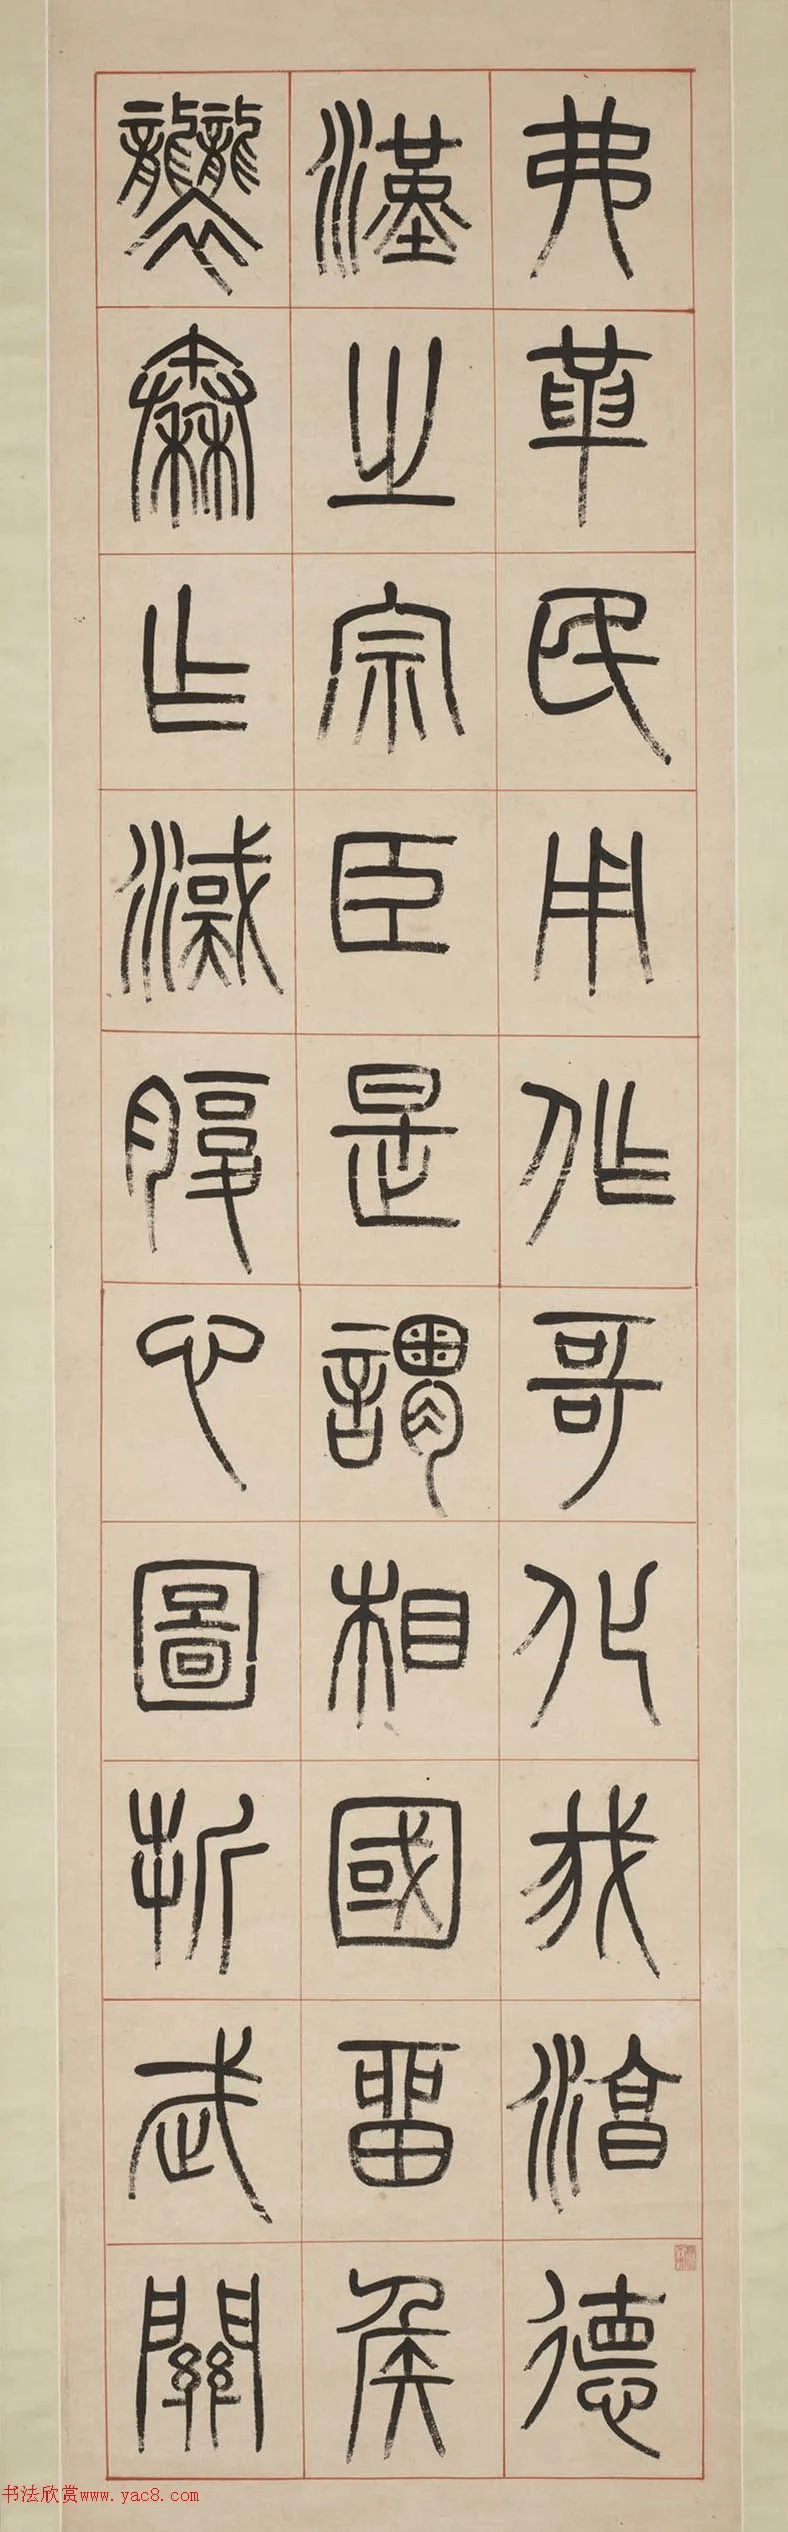 弗華民用作哥化我淳德
漢之宗臣是謂相國留侯
襲秦乍漢腹心圖折武關
书法欣赏www.yac8.com